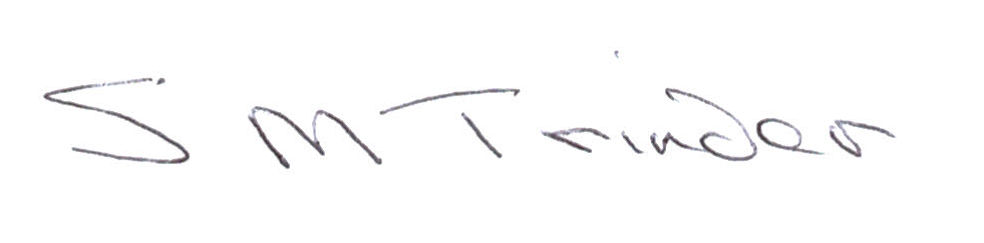 S M Trinder